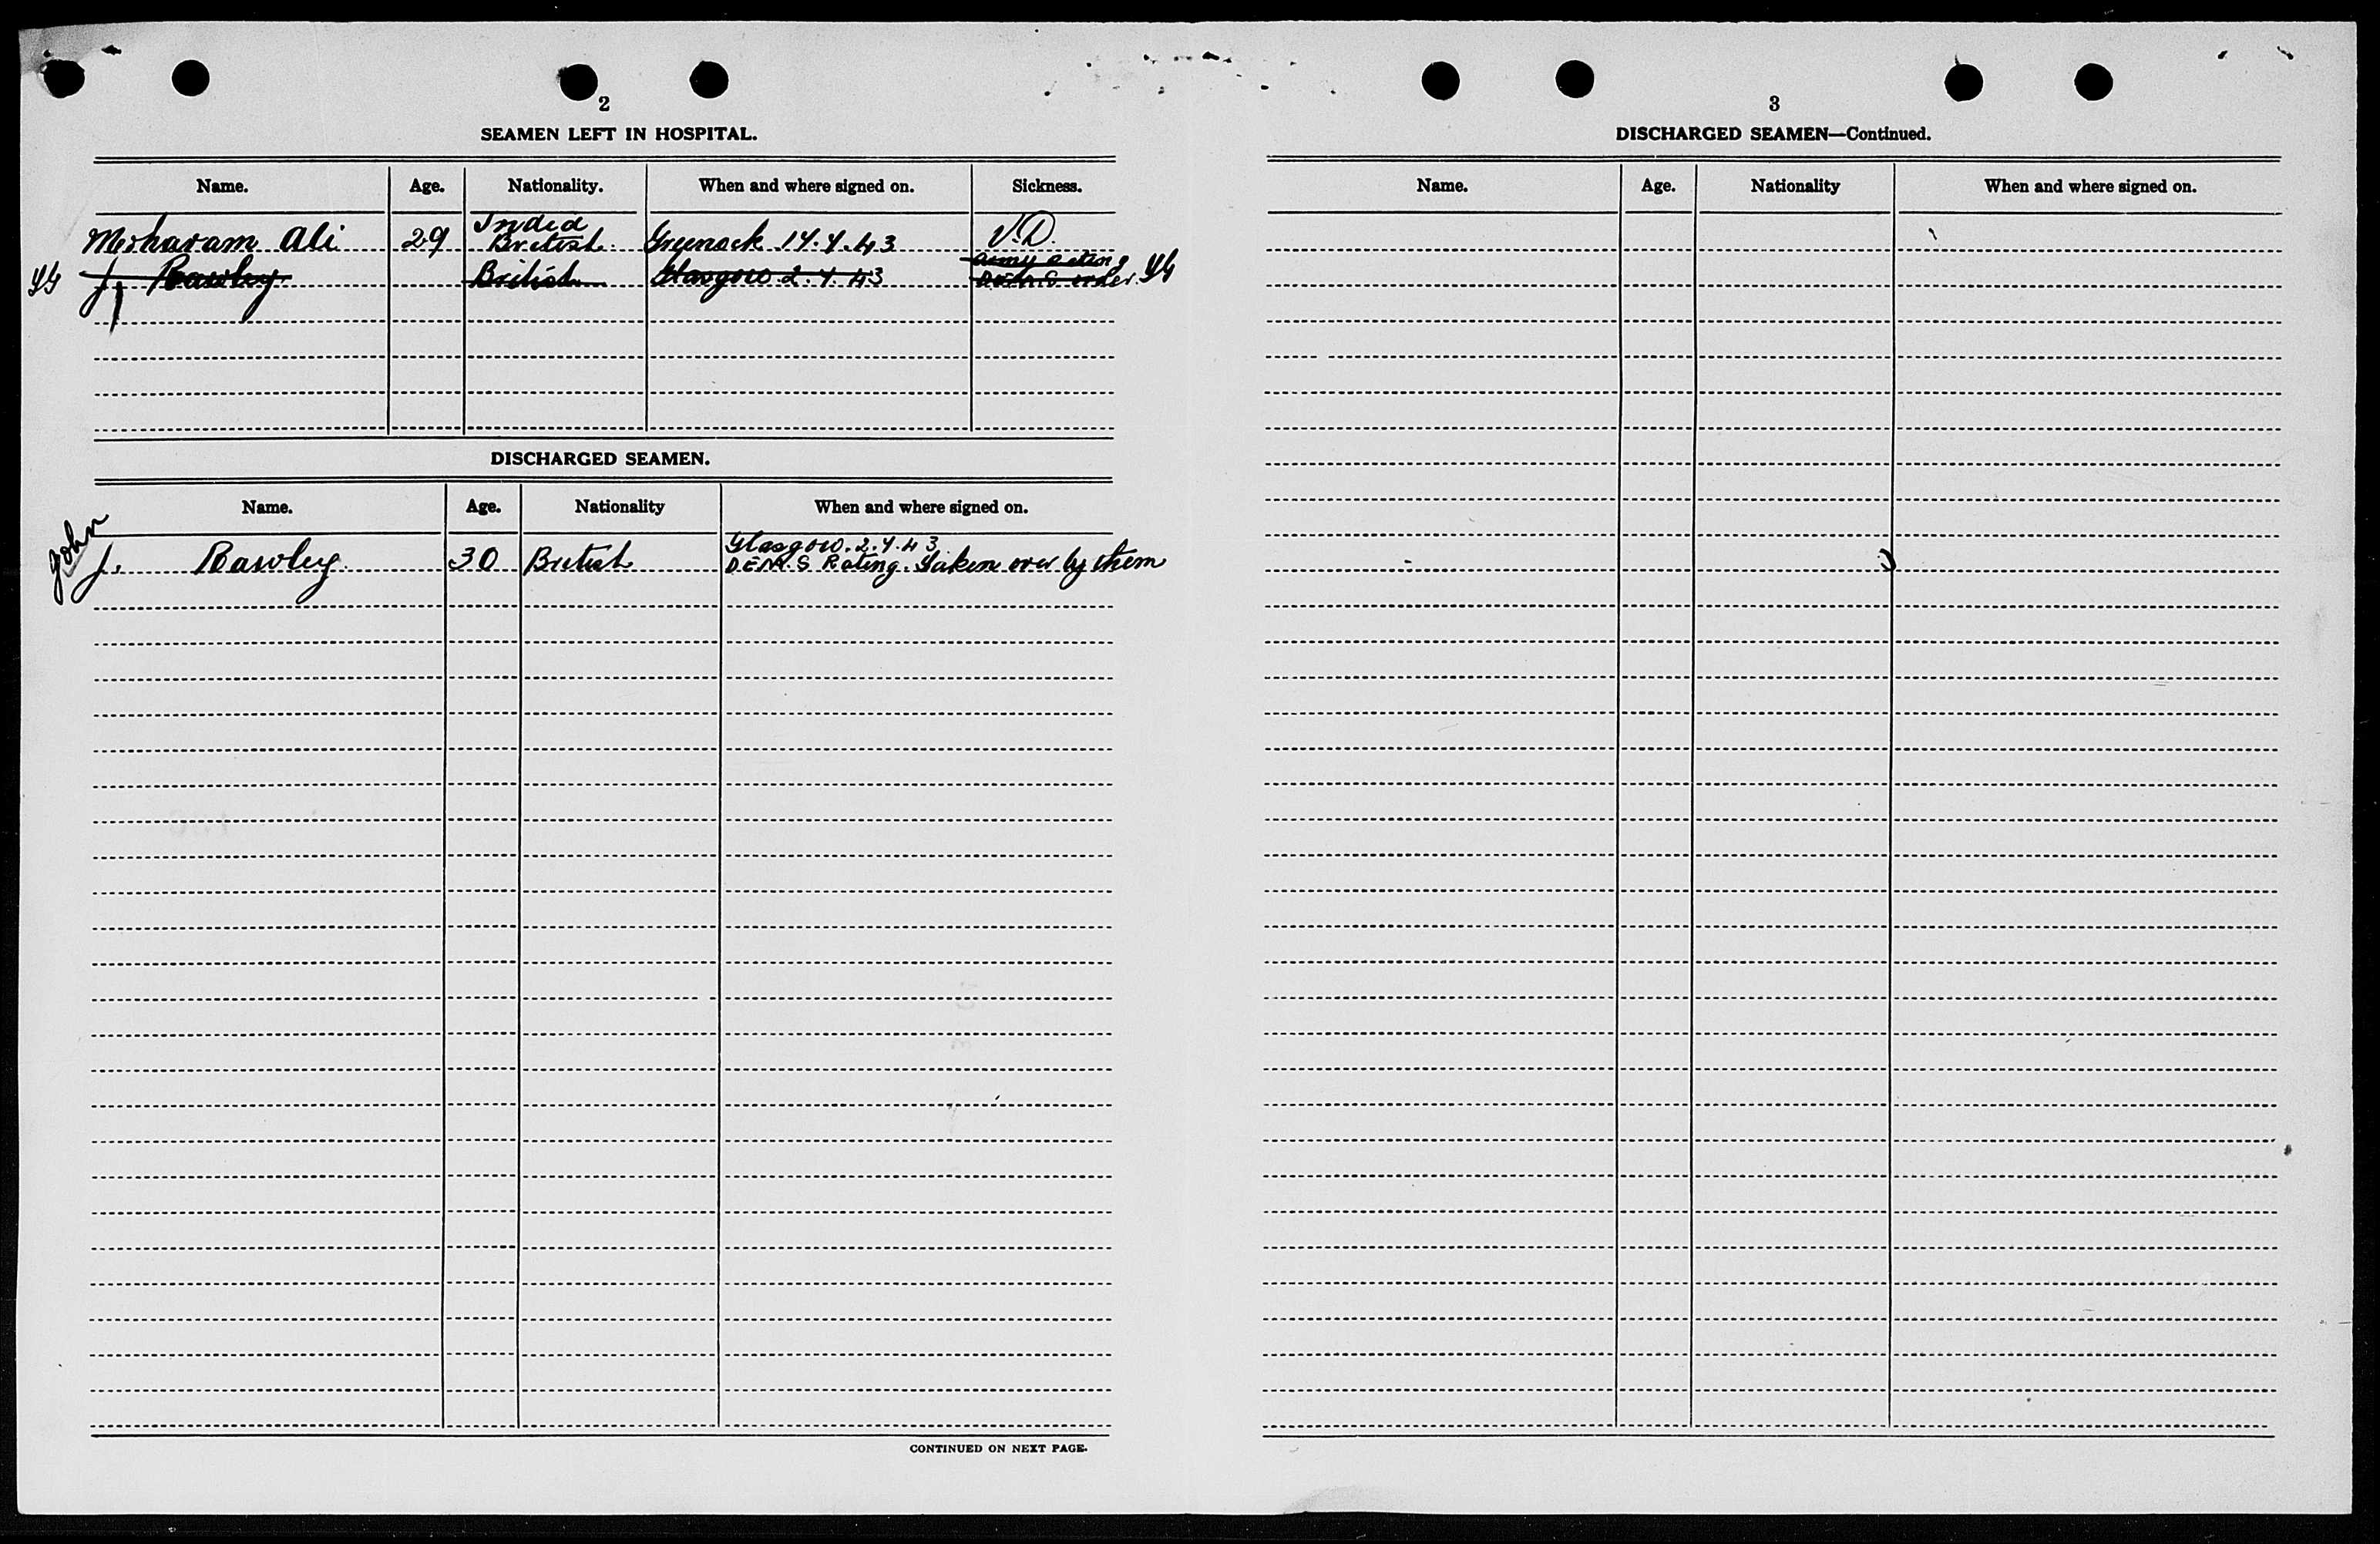 2
SEAMEN LEFT IN HOSPITAL.
Name. Age. Nationality. When and where signed on. Sickness.
India
Moharam Ali 29 British Greenock 14.4.43 V.D.
J. Bawley British Glasgow 2.4.43 army acting order
DISCHARGED SEAMEN.
Name. Age. Nationality When and where signed on.
John Glasgow. 2.4.43
J. Bawley. 30 British D.E.M.S Rating. Taken over by them
CONTINUED ON NEXT PAGE.
3
DISCHARGED SEAMEN—Continued.
Name. Age. Nationality When and where signed on.